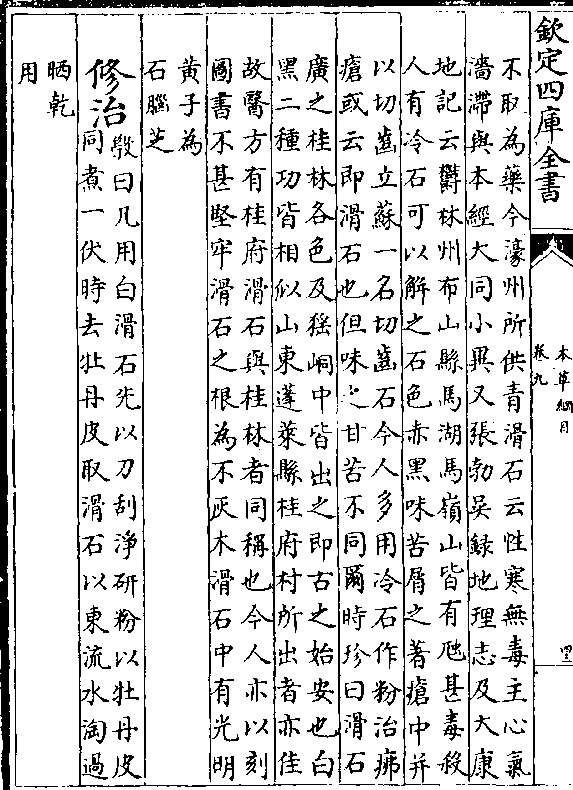 欽定四庫全書
本草綱目
卷九
不取為藥今濠州所供青滑石云性寒無毒主心氣
濇滯與本經大同小異又張勃吳録地理志及大康
地記云鬱林州布山縣馬湖馬嶺山皆有虺甚毒殺
人有冷石可以解之石色赤黑味苦屑之著瘡中并
以切齒立蘇一名切齒石今人多用冷石作粉治疿
瘡或云即滑石也但味之甘苦不同爾時珍曰滑石
廣之桂林各色及猺峒中皆出之即古之始安也白
黑二種功皆相似山東蓬萊縣桂府村所出者亦佳
故醫方有桂府滑石與桂林者同稱也今人亦以刻
圖書不甚堅牢滑石之根為不灰木滑石中有光明
黄子為
石腦芝
修治
斆曰凡用白滑石先以刀刮淨研粉以牡丹皮
同煮一伏時去牡丹皮取滑石以東流水淘過
晒乾
用